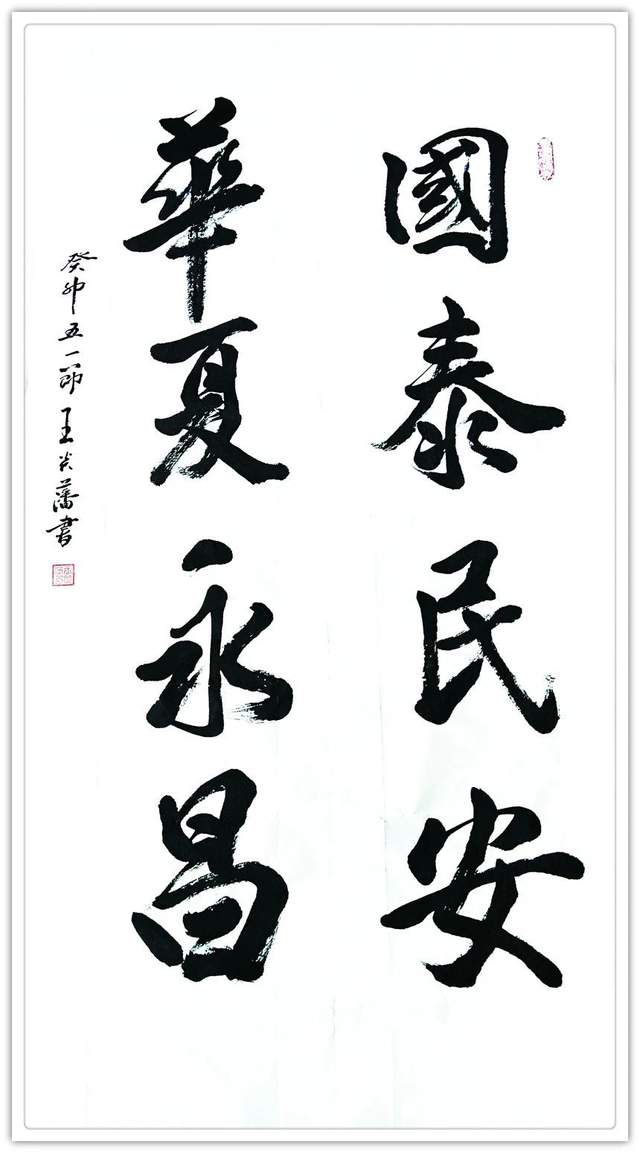 國泰民安
華夏永昌
癸卯五一節王炎藩書